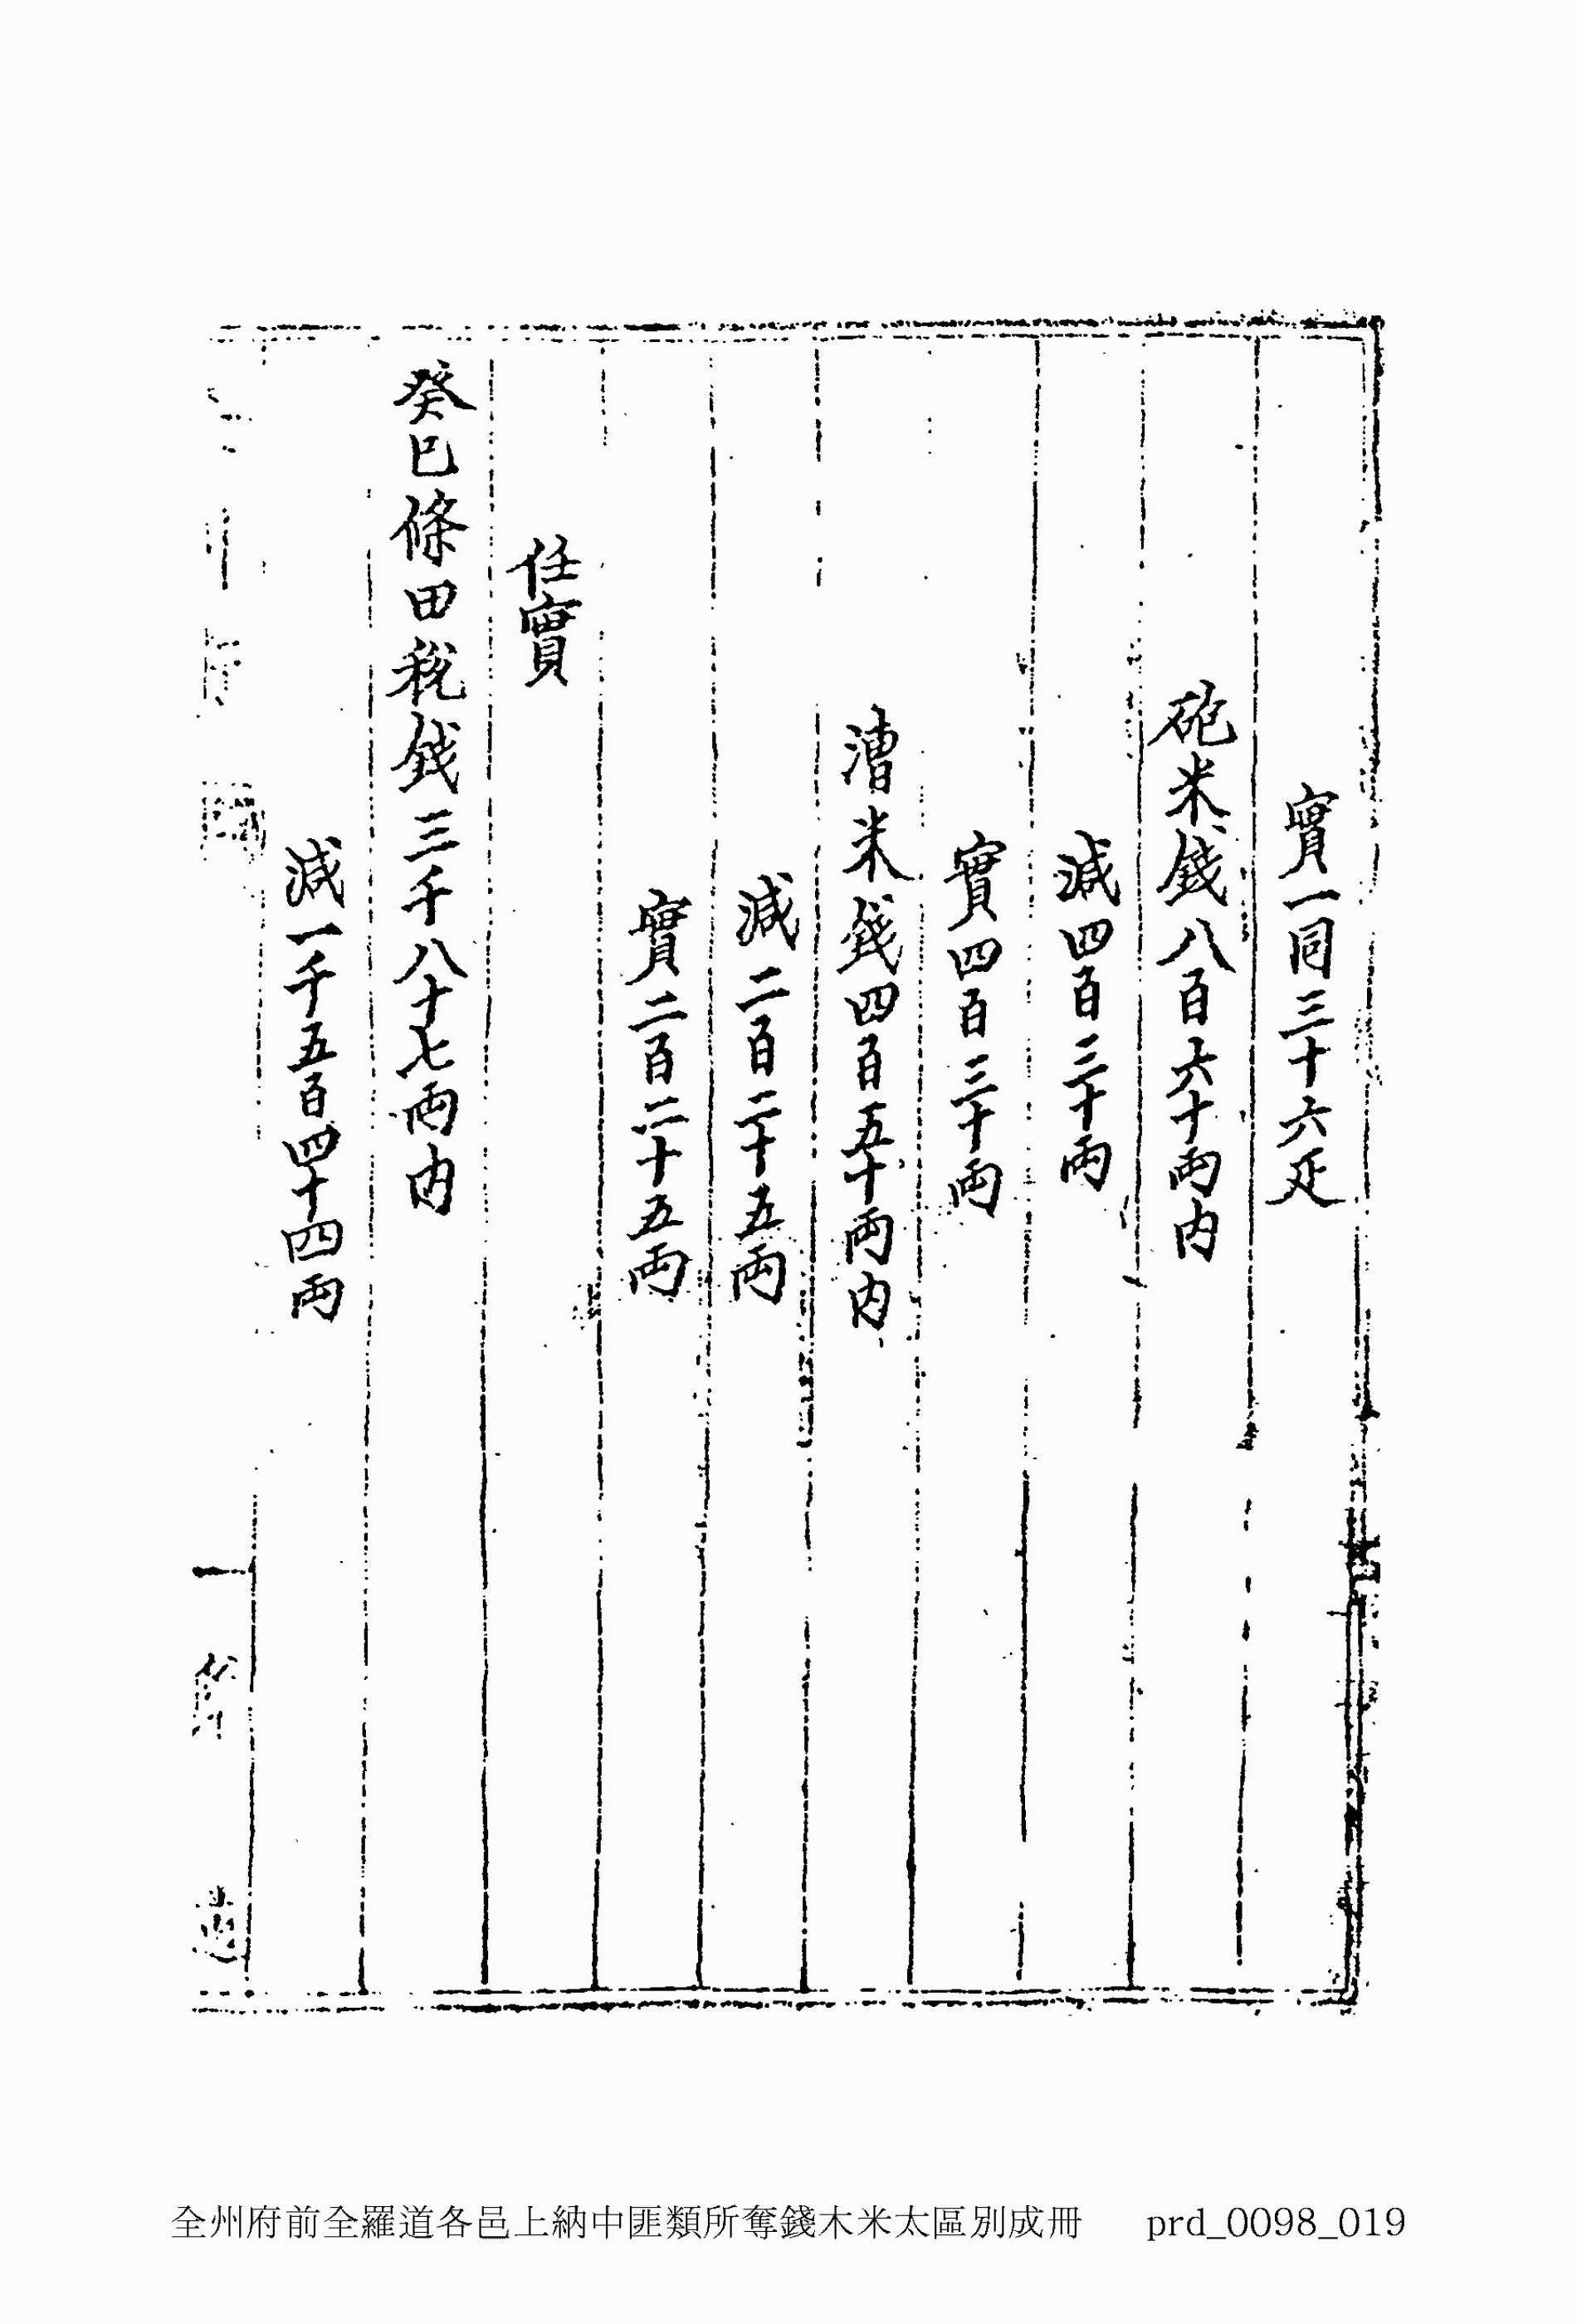 實一同三十六疋
砲米錢八百六十両内
減四百三十両
實四百三十両
漕米錢四百五十両内
減二百二十五両
實二百二十五両
任實
癸巳條田稅錢三千八十七両内
減一千五百四十四両
全州府前全羅道各邑上納中匪類所奪錢木米太區別成冊 prd_0098_019